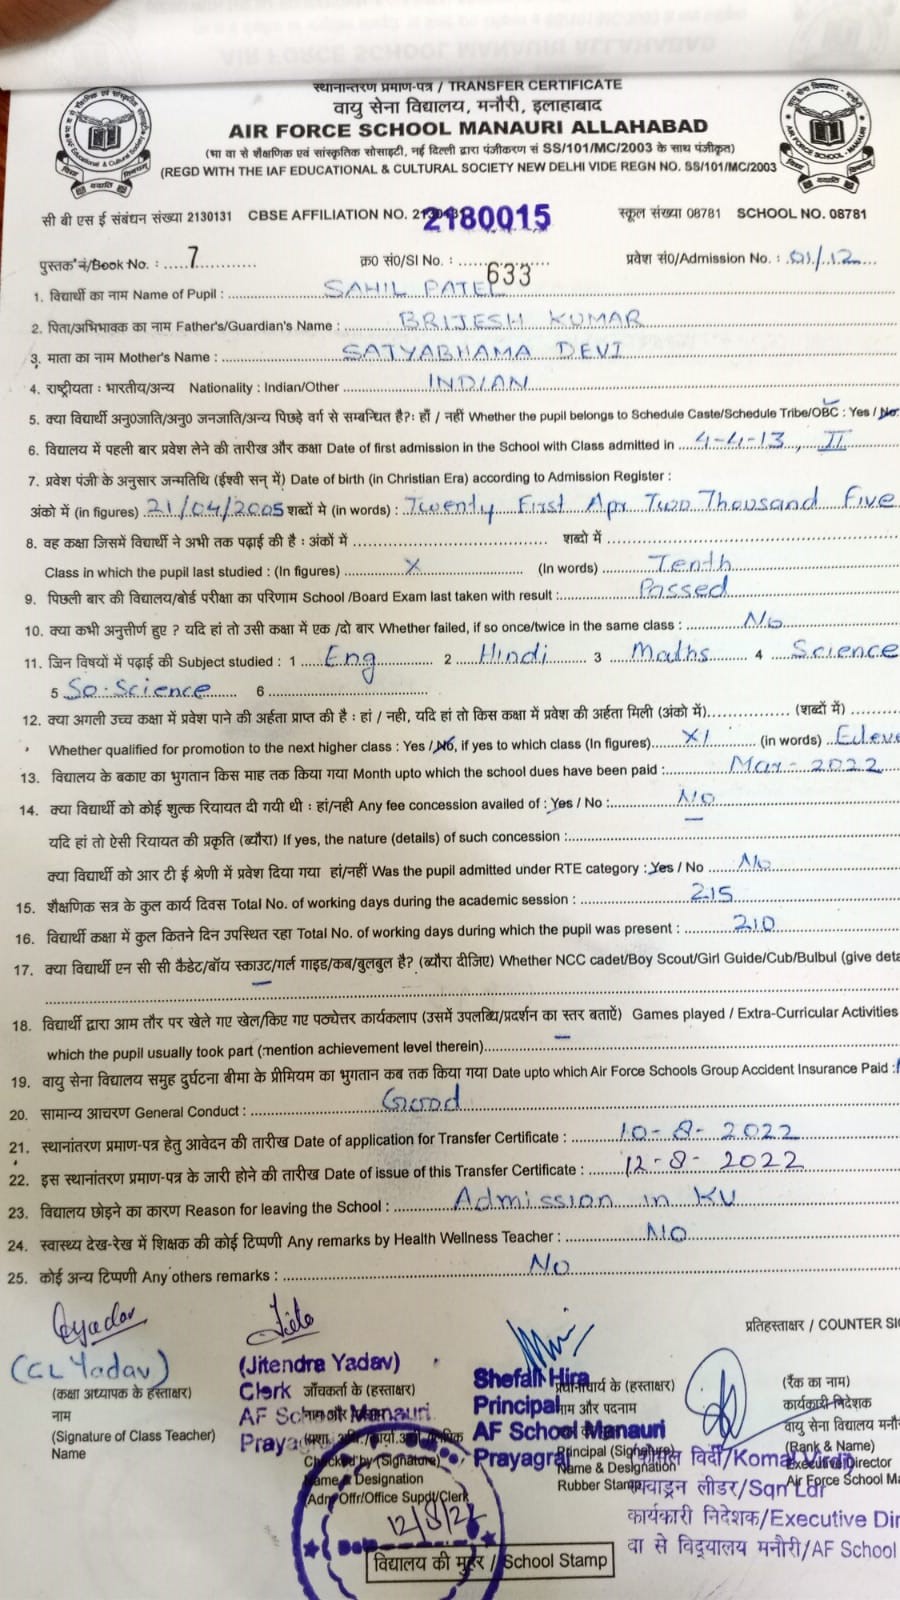 स्थानान्तरण प्रमाण-पत्र / TRANSFER CERTIFICATE
वायु सेना विद्यालय, मनौरी, इलाहाबाद
AIR FORCE SCHOOL MANAURI ALLAHABAD
(भा वा से शैक्षणिक एवं सांस्कृतिक सोसाइटी, नई दिल्ली द्वारा पंजीकरण सं SS/101/MC/2003 के साथ पंजीकृत)
(REGD WITH THE IAF EDUCATIONAL & CULTURAL SOCIETY NEW DELHI VIDE REGN NO. SS/101/MC/2003
सी बी एस ई संबंधन संख्या 2130131 CBSE AFFILIATION NO. 2180015 स्कूल संख्या 08781 SCHOOL NO. 08781
पुस्तक नं/Book No. : 7 क्र० सं०/SI No. : 633 प्रवेश सं०/Admission No. : 01/12
1. विद्यार्थी का नाम Name of Pupil : SAHIL PATEL
2. पिता/अभिभावक का नाम Father's/Guardian's Name : BRIJESH KUMAR
3. माता का नाम Mother's Name : SATYABHAMA DEVI
4. राष्ट्रीयता : भारतीय/अन्य Nationality : Indian/Other INDIAN
5. क्या विद्यार्थी अनु०जाति/अनु० जनजाति/अन्य पिछड़े वर्ग से सम्बन्धित है?: हाँ / नहीं Whether the pupil belongs to Schedule Caste/Schedule Tribe/OBC : Yes / No
6. विद्यालय में पहली बार प्रवेश लेने की तारीख और कक्षा Date of first admission in the School with Class admitted in 4-4-13, II
7. प्रवेश पंजी के अनुसार जन्मतिथि (ईश्वी सन् में) Date of birth (in Christian Era) according to Admission Register :
अंको में (in figures) 21/04/2005 शब्दों मे (in words) : Twenty First Apr Two Thousand Five
8. वह कक्षा जिसमें विद्यार्थी ने अभी तक पढ़ाई की है : अंकों में शब्दो में
Class in which the pupil last studied : (In figures) X (In words) Tenth
9. पिछली बार की विद्यालय/बोर्ड परीक्षा का परिणाम School /Board Exam last taken with result : Passed
10. क्या कभी अनुत्तीर्ण हुए ? यदि हां तो उसी कक्षा में एक /दो बार Whether failed, if so once/twice in the same class : No
11. जिन विषयों में पढ़ाई की Subject studied : 1 Eng 2 Hindi 3 Maths 4 Science
5 So. Science 6
12. क्या अगली उच्च कक्षा में प्रवेश पाने की अर्हता प्राप्त की है : हां / नही, यदि हां तो किस कक्षा में प्रवेश की अर्हता मिली (अंको में) (शब्दों में)
Whether qualified for promotion to the next higher class : Yes / No, if yes to which class (In figures) XI (in words) Eleve
13. विद्यालय के बकाए का भुगतान किस माह तक किया गया Month upto which the school dues have been paid : Mar-2022
14. क्या विद्यार्थी को कोई शुल्क रियायत दी गयी थी : हां/नही Any fee concession availed of : Yes / No : NO
यदि हां तो ऐसी रियायत की प्रकृति (ब्यौरा) If yes, the nature (details) of such concession :
क्या विद्यार्थी को आर टी ई श्रेणी में प्रवेश दिया गया हां/नहीं Was the pupil admitted under RTE category : Yes / No No
15. शैक्षणिक सत्र के कुल कार्य दिवस Total No. of working days during the academic session : 215
16. विद्यार्थी कक्षा में कुल कितने दिन उपस्थित रहा Total No. of working days during which the pupil was present : 210
17. क्या विद्यार्थी एन सी सी कैडेट/बॉय स्काउट/गर्ल गाइड/कब/बुलबुल है? (ब्यौरा दीजिए) Whether NCC cadet/Boy Scout/Girl Guide/Cub/Bulbul (give deta
18. विद्यार्थी द्वारा आम तौर पर खेले गए खेल/किए गए पाठ्येत्तर कार्यकलाप (उसमें उपलब्धि/प्रदर्शन का स्तर बताऍं) Games played / Extra-Curricular Activities
which the pupil usually took part (mention achievement level therein)
19. वायु सेना विद्यालय समुह दुर्घटना बीमा के प्रीमियम का भुगतान कब तक किया गया Date upto which Air Force Schools Group Accident Insurance Paid :
20. सामान्य आचरण General Conduct : Good
21. स्थानांतरण प्रमाण-पत्र हेतु आवेदन की तारीख Date of application for Transfer Certificate : 10-8-2022
22. इस स्थानांतरण प्रमाण-पत्र के जारी होने की तारीख Date of issue of this Transfer Certificate : 12-8-2022
23. विद्यालय छोड़ने का कारण Reason for leaving the School : Admission in KV
24. स्वास्थ्य देख-रेख में शिक्षक की कोई टिप्पणी Any remarks by Health Wellness Teacher : NO
25. कोई अन्य टिप्पणी Any others remarks : No
प्रतिहस्ताक्षर / COUNTER SI
(CL Yadav) (Jitendra Yadav) Shefali Hira (रैंक का नाम)
(कक्षा अध्यापक के हस्ताक्षर) Clerk जाँचकर्ता के (हस्ताक्षर) Principal प्रधानाचार्य के (हस्ताक्षर) कार्यकारी निदेशक
नाम AF School Manauri AF School Manauri नाम और पदनाम वायु सेना विद्यालय मनौ
(Signature of Class Teacher) Prayagraj Prayagraj Principal (Signature) (Rank & Name)
Name Checked by (Signature) Name & Designation Executive Director
Name & Designation Rubber Stamp Air Force School M
Adm Offr/Office Supdt/Clerk
कोमल विर्दी/Komal Virdi
स्क्वाड्रन लीडर/Sqn Ldr
कार्यकारी निदेशक/Executive Dir
वा से विद्यालय मनौरी/AF School
12/8/22
Date
विद्यालय की मुहर / School Stamp